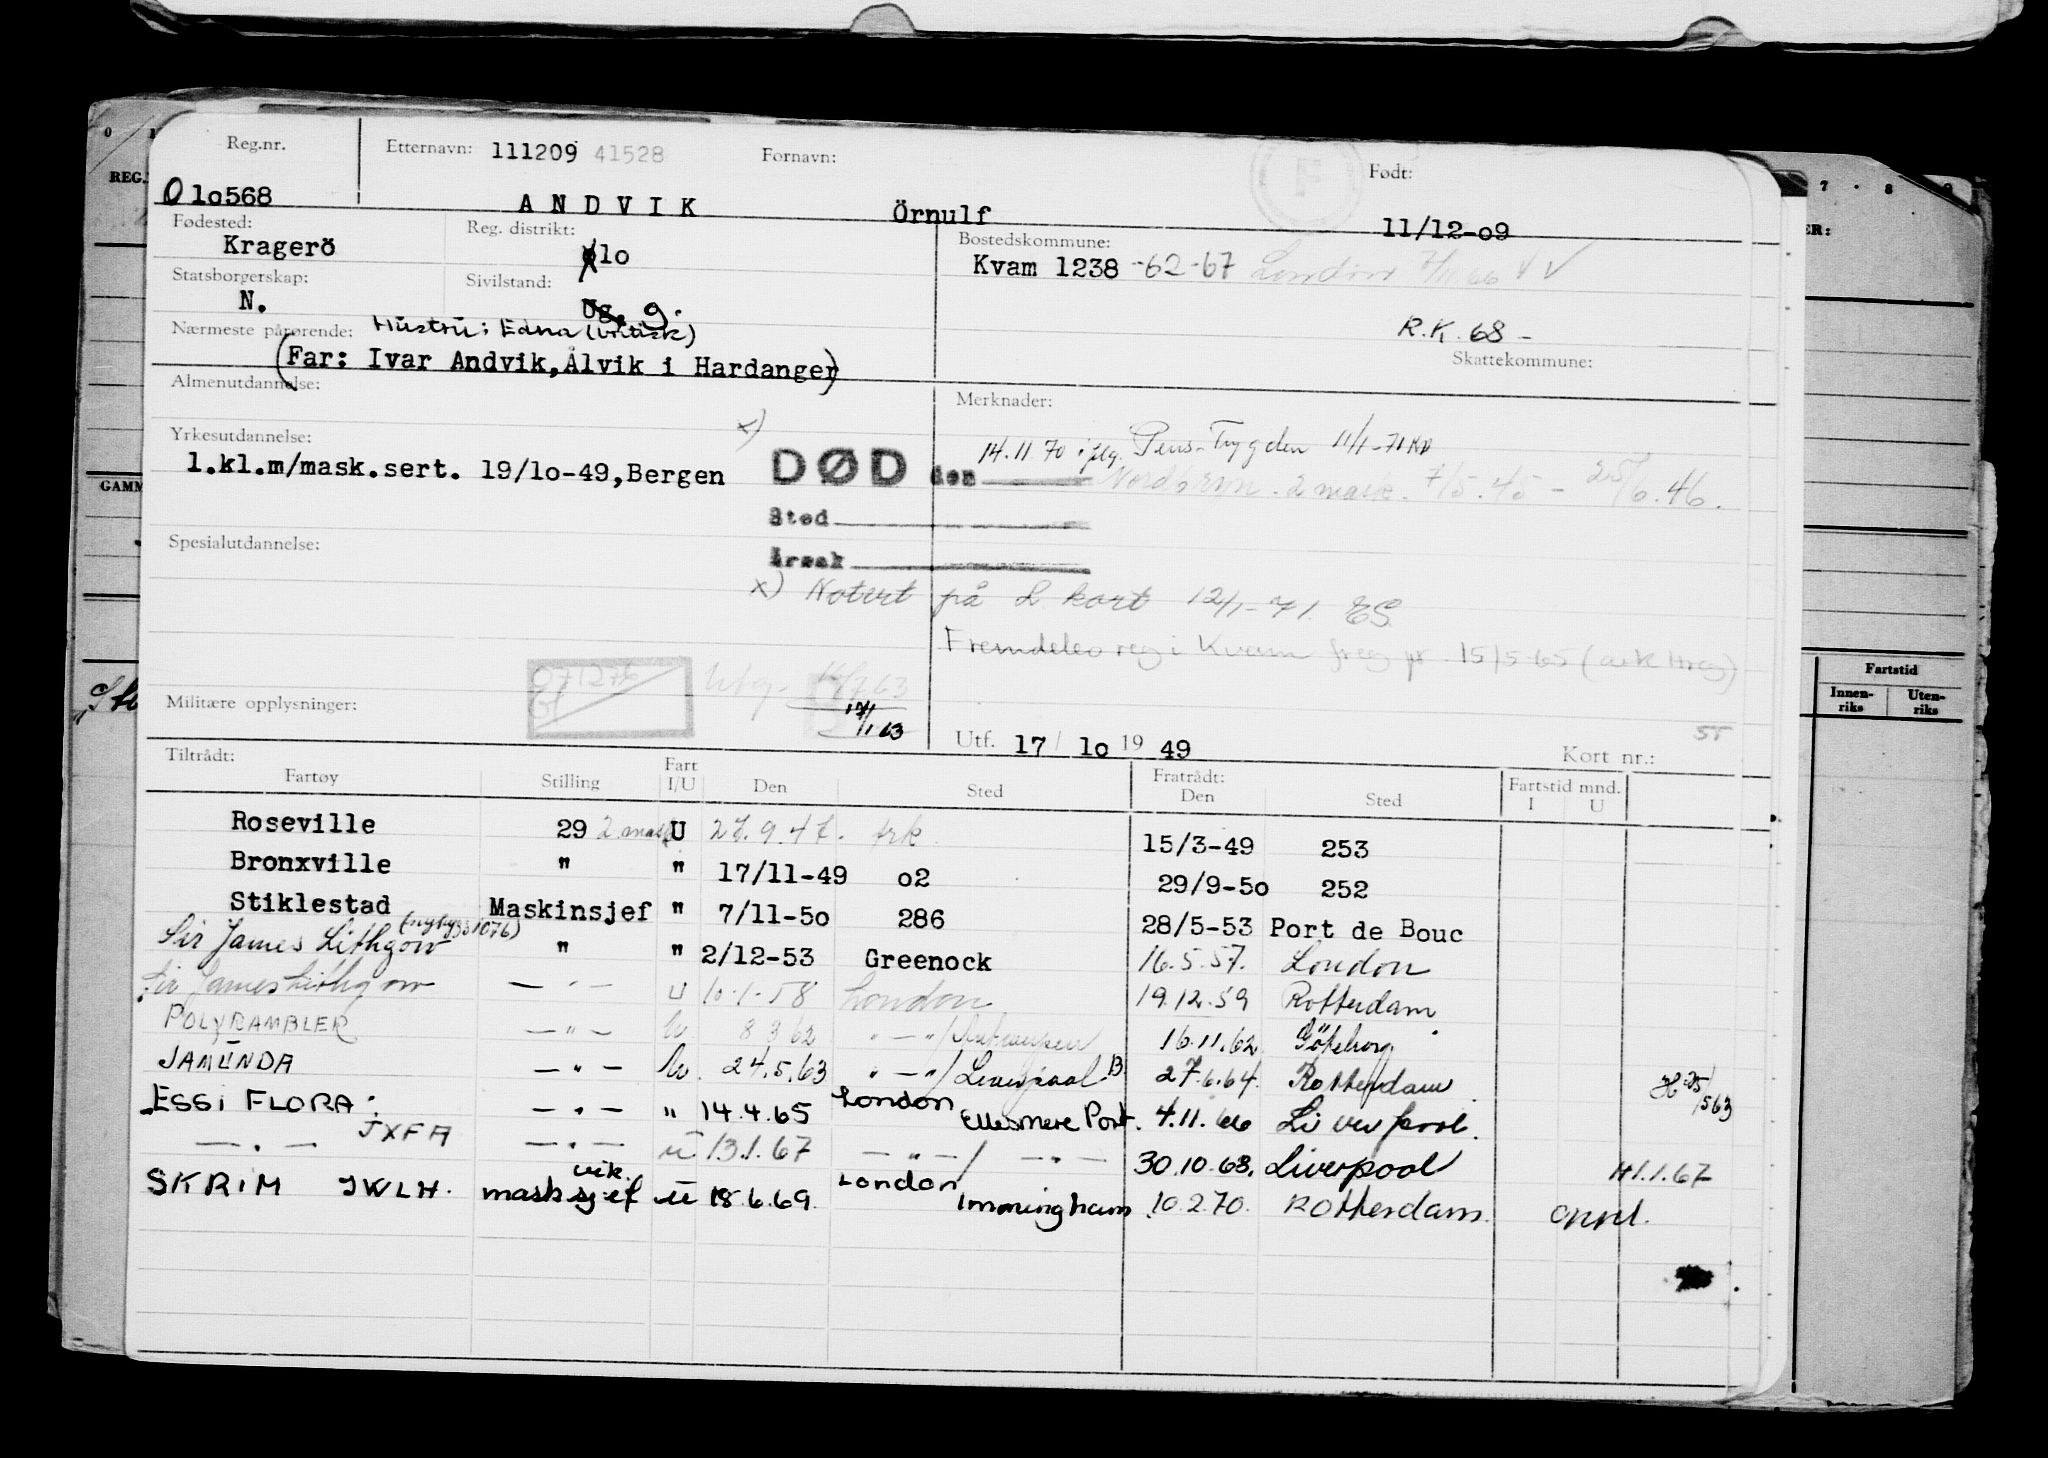 Reg.nr. Etternavn: 111209 41528 Fornavn: Født:
O 1o568 ANDVIK Örnulf 11/12-o9
Fødested: Reg. distrikt: Bostedskommune:
Kragerö 1o Kvam 1238 -62-67 London 7/11 66 V V
Statsborgerskap: Sivilstand:
N. Ug. g.
Nærmeste pårørende: Hustru: Edna (britisk) R.K. 68 -
(Far: Ivar Andvik, Ålvik i Hardanger) Skattekommune:
Almenutdannelse: Merknader:
Yrkesutdannelse: x) 14.11.70 iflg. Pens-Trygden 11/1-71
1.kl.m/mask.sert. 19/1o-49, Bergen DØD den Nordbryn. 2 mask. 7/5.45 - 25/6.46.
Sted
Spesialutdannelse: Årsak
x) Notert på L kort 12/1-71. ES
Fremdeles reg i Kvam freg pr. 15/5-65
071276
Utg. 17/1 63
Militære opplysninger:
Utf. 17/ 1o 19 49 55
Tiltrådt: Kort nr.:
Fartøy Stilling Fart I/U Den Sted Fratrådt: Den Sted Fartstid mnd. I U
Roseville 29 2 mask U 27.9.47. trk 15/3-49 253
Bronxville " " 17/11-49 o2 29/9-5o 252
Stiklestad Maskinsjef " 7/11-5o 286 28/5-53 Port de Bouc
Sir James Lithgow (nybygg 1076) " " 2/12-53 Greenock 16.5.57. London
Sir James Lithgow — " — U 10.1.58 London 19.12.59 Rotterdam
POLYRAMBLER — " — U 8 3 62 " — " / Antwerpen 16.11.62 Göteborg
JAMUNDA — " — U. 24.5.63 " — " / Liverpool B 27.6.64. Rotterdam
ESSI FLORA: JXFA — " — " 14.4.65 London Ellesmere Port. 4.11.66 Liverpool.
— " — — " — U 13.1.67 — " — / — " — 30.10.68. Liverpool H1.1.67
SKRIM JWLH. vik. masksjef U 18.6.69. London Immingham 10.2.70. Rotterdam.
REG.
GAMM
7 8 9
ER:
Fartstid
Innen-
riks
Uten-
riks